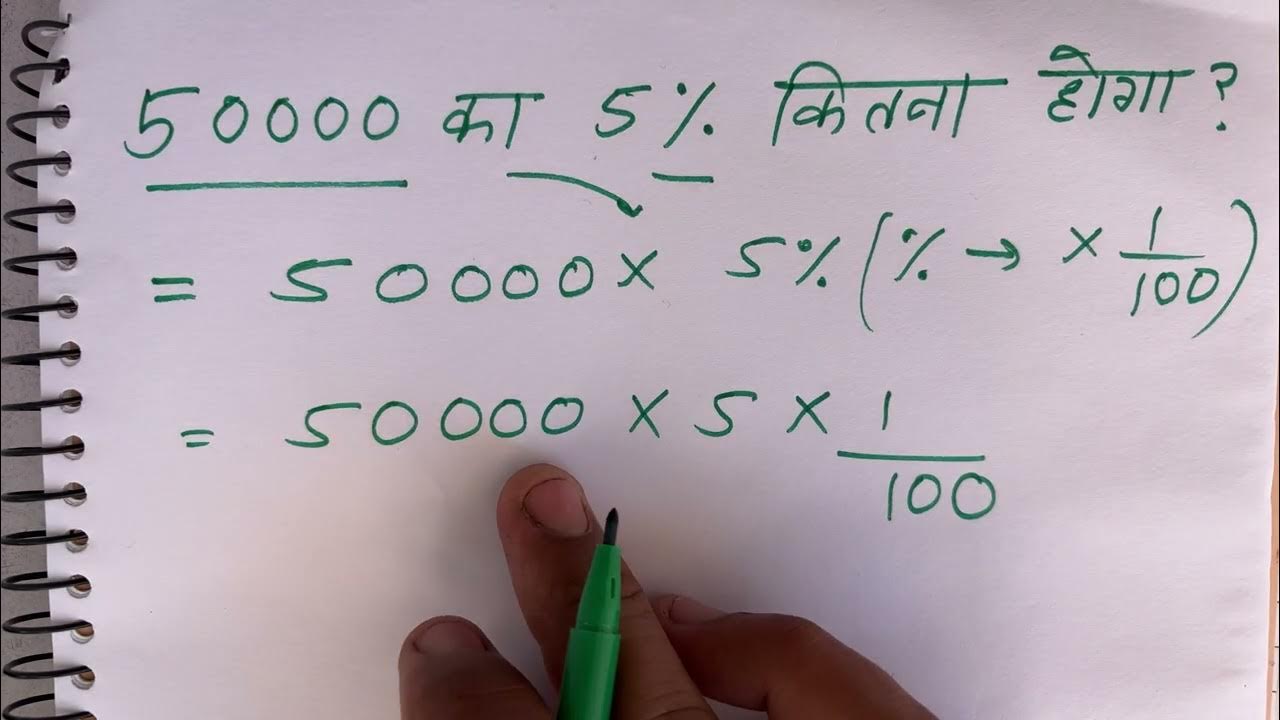 50000 का 5% कितना होगा?
= 50000 × 5% (% → × 1/100)
= 50000 × 5 × 1/100